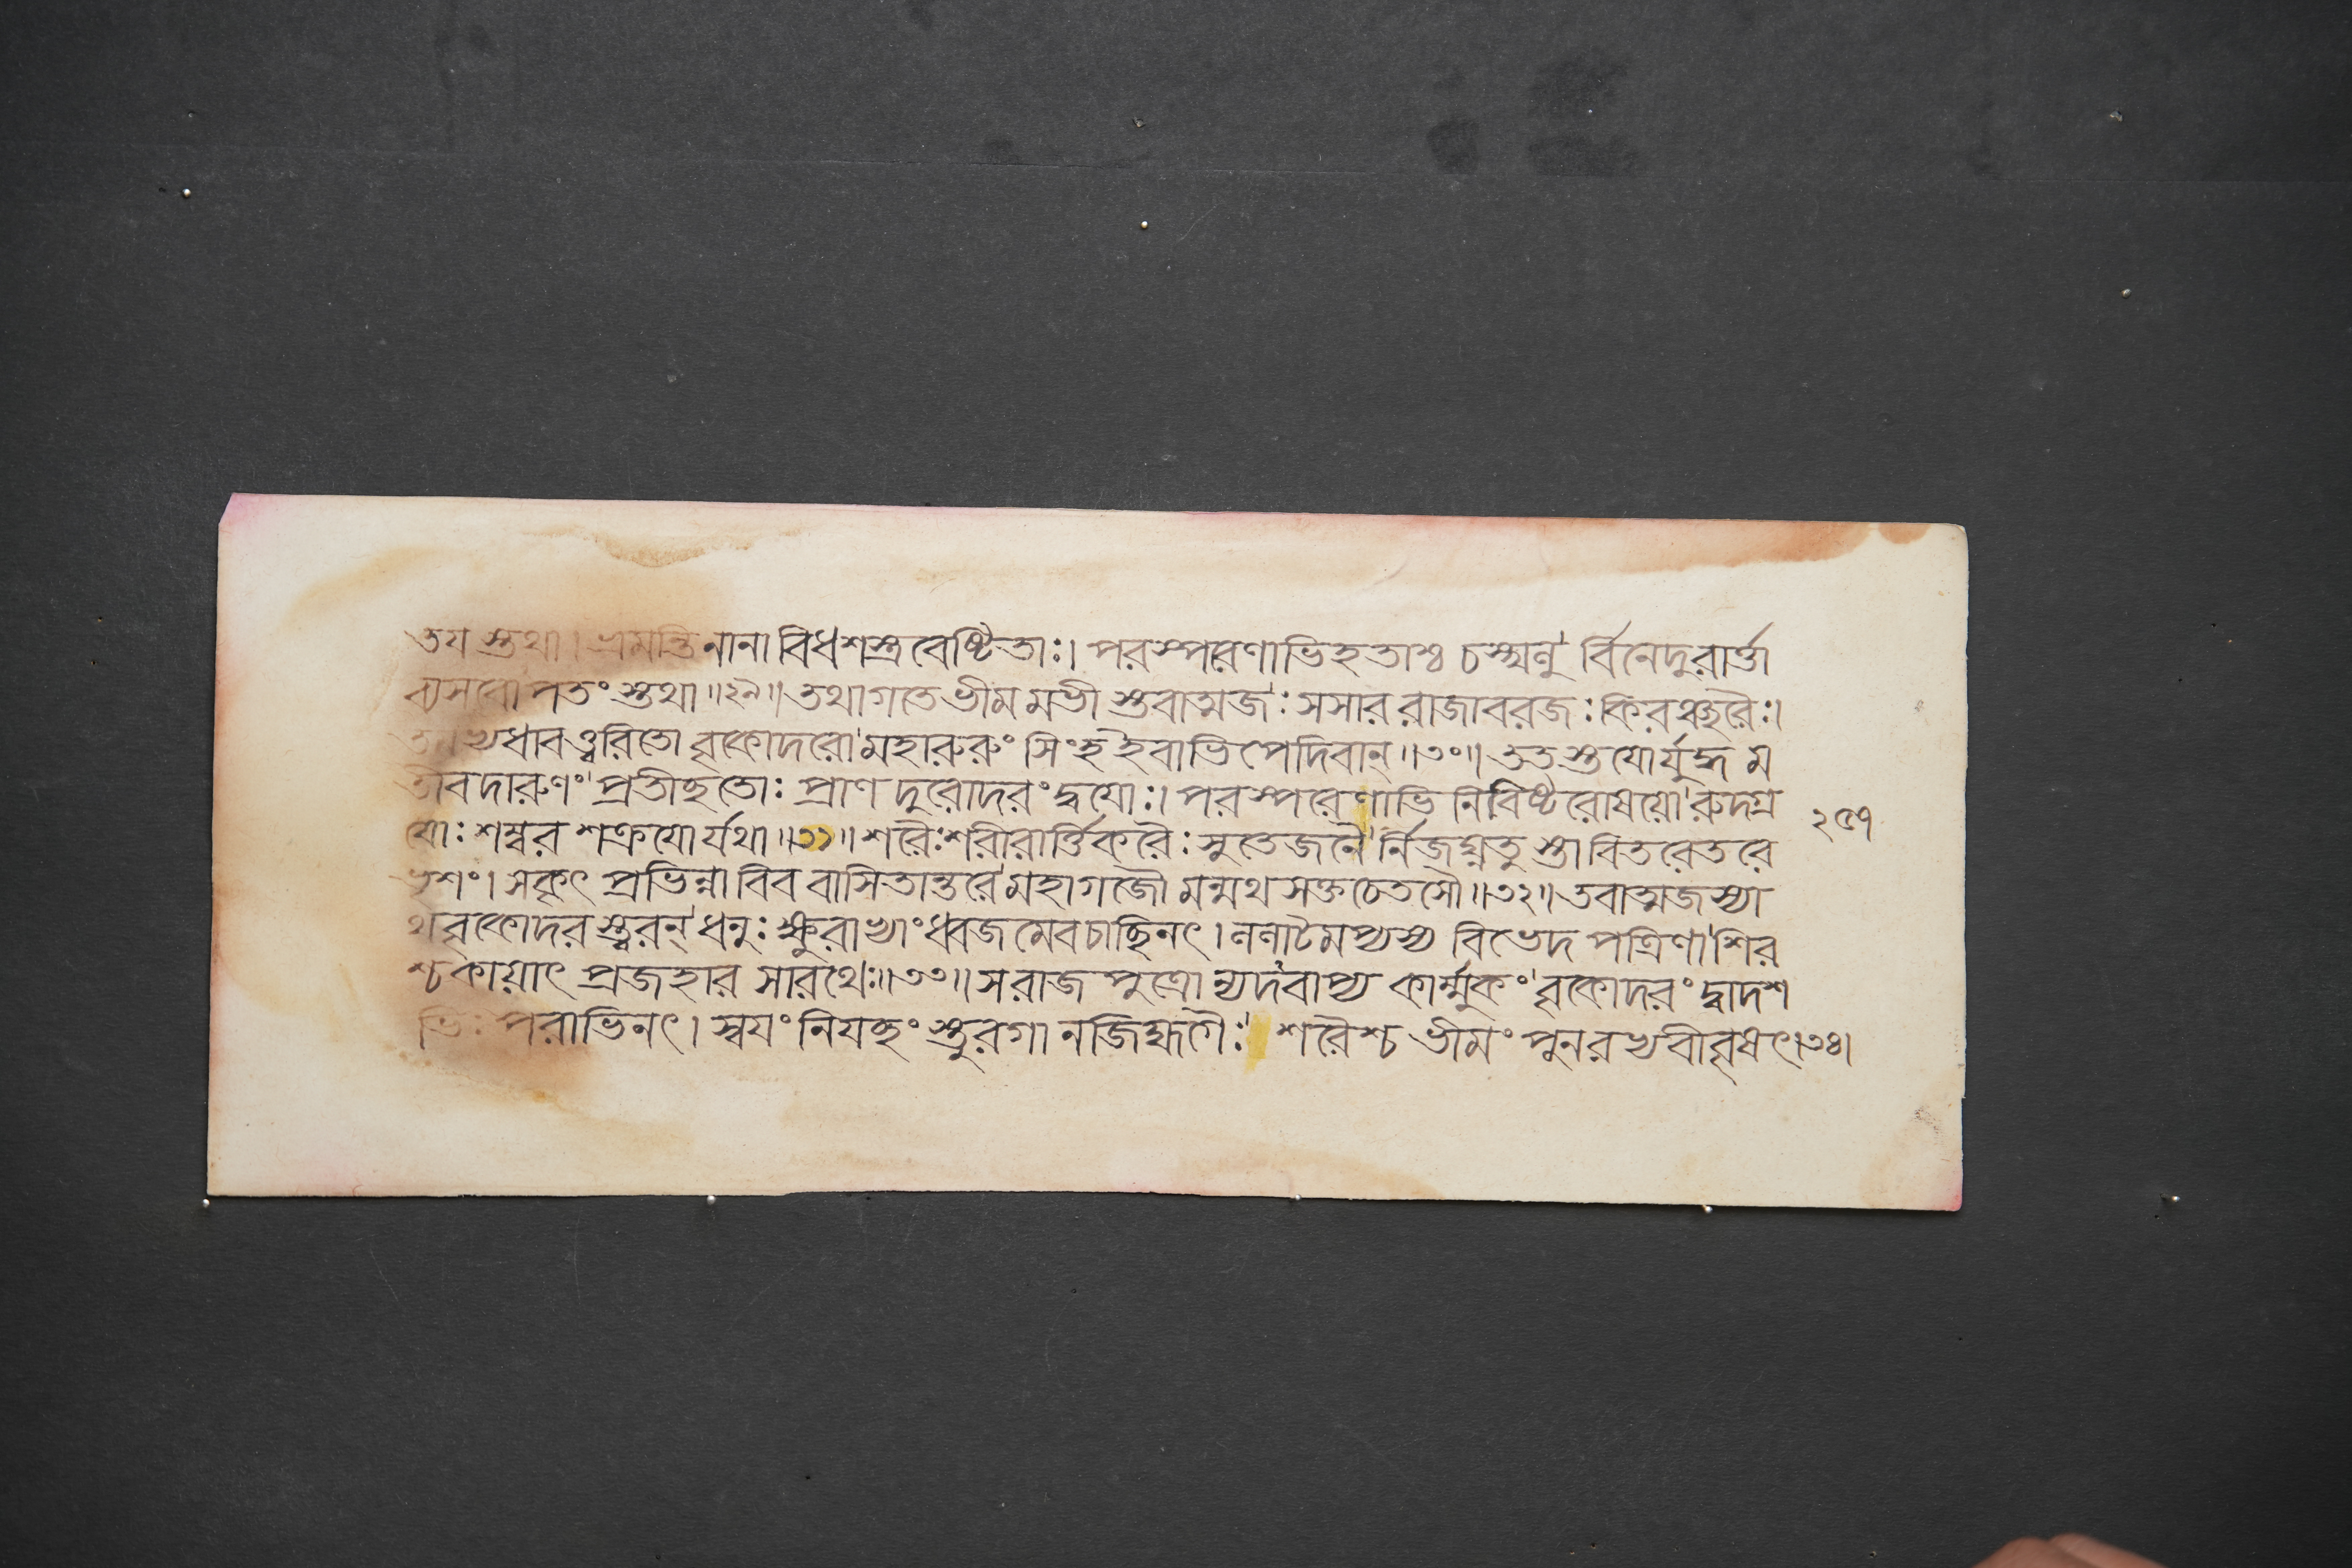 তয স্তথা। ভ্রমন্তি নানা বিধশস্ত্র বেষ্টিতাঃ। পরস্পরেণাভিহতাশ্চ চস্খলু র্বিনেদুরার্ত্তা
ব্যসবো পতং স্তথা॥২৯॥ তথাগতে ভীম মভী স্তবাত্মজঃ সসার রাজাবরজঃ কিরঞ্ছরৈঃ।
ধাব ত্ত্বরিতো বৃকোদরো মহারুরুং সিংহ ইবাভি পেদিবান্॥৩০॥ তত স্তযোর্যুদ্ধ ম
তীব দারুণং প্রতীচ্ছতোঃ প্রাণ দুরোদরং দ্বযোঃ। পরস্পরেণাভি নিবিষ্ট রোষয়ো রুদগ্র
যোঃ শম্বর শক্রযো র্যথা॥৩১॥ শরৈঃ শরীরার্ত্তিকরৈঃ সুতেজনৈ র্নিজঘ্নতু স্তা বিতরেতরে
ভৃশং। সকৃৎ প্রভিন্না বিব বাসিতান্তরে মহাগজৌ মন্মথ সক্ত চেতসৌ॥৩২॥ তবাত্মজস্যা
থ বৃকোদর স্ত্বরন্ ধনুঃ ক্ষুরাভ্যাং ধ্বজ মেব চাচ্ছিনৎ। ললাটমপ্যস্য বিভেদ পত্রিণা শির
শ্চ কায়াৎ প্রজহার সারথেঃ॥৩৩॥ স রাজ পুত্রো ন্যদবাপ্য কার্ম্মুকং বৃকোদরং দ্বাদশ
ভিঃ পরাভিনৎ। স্বযং নিযচ্ছং স্তুরগা নজিহ্মগৈঃ শরৈশ্চ ভীমং পুনরভ্যবীবৃষৎ।৩৪।
২৫৭